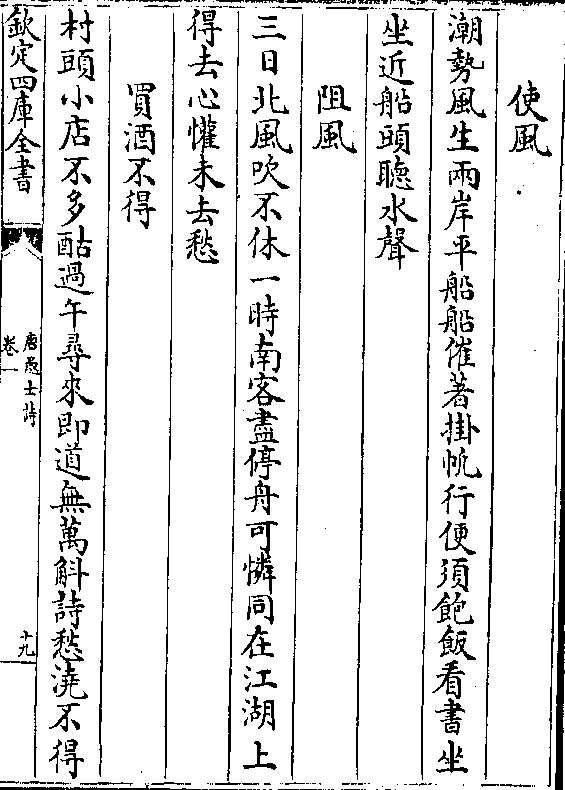 使風
潮勢風生兩岸平船船催著掛帆行便須飽飯看書坐
坐近船頭聽水聲
阻風
三日北風吹不休一時南客盡停舟可憐同在江湖上
得去心懽未去愁
買酒不得
村頭小店不多酤過午尋來即道無萬斛詩愁澆不得
欽定四庫全書
唐愚士詩
卷一
十九